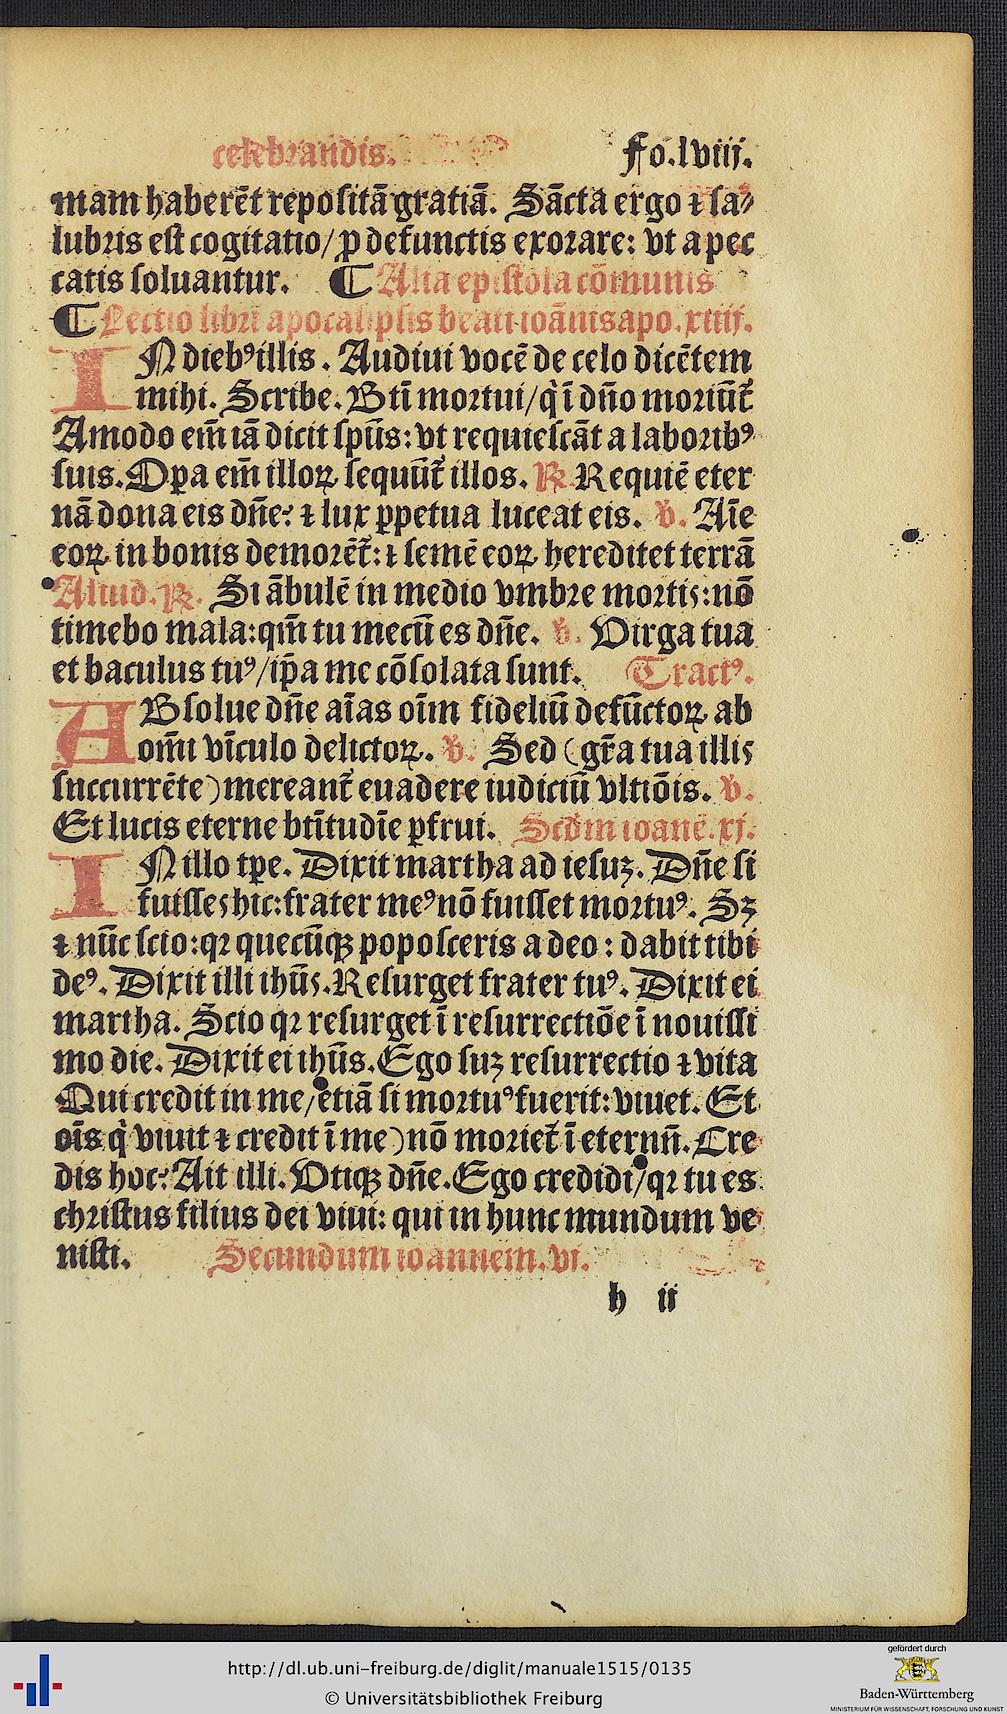 celebrandis. Fo.lviij.
mam haberēt repositā gratiā. Sācta ergo ⁊ sa⸗
lubris est cogitatio/ ꝓ defunctis exorare: vt a pec
catis soluantur. ¶ Alia epistola cōmunis
¶ Lectio libri apocalipsis beati ioānis apo. xiiij.
IN diebꝰ illis. Audiui vocē de celo dicētem
mihi. Scribe. Bti̅ mortui/ q̇ ī dn̄o moriūt̄
Amodo em̄ iā dicit sp̄us: vt requiescāt a laboribꝰ
suis. Oꝑa em̄ illoꝝ sequūt̄ illos. ℟. Requiē eter
nā dona eis dn̄e: ⁊ lux ꝑpetua luceat eis. ℣. Aīe
eoꝝ in bonis demorēt̄: ⁊ semē eoꝝ hereditet terrā
Aliud. ℟. Si ābulē in medio vmbre mortis: nō
timebo mala: qm̄ tu mecū es dn̄e. ℣. Virga tua
et baculus tuꝰ/ ip̄a me cōsolata sunt. Tractꝰ.
ABsolue dn̄e aīas oīm fideliū defūctoꝝ ab
omī vīculo delictoꝝ. ℣. Sed (gr̄a tua illis
succurrēte) mereant̄ euadere iudiciū vltiōis. ℣.
Et lucis eterne btītudīe ꝑfrui. Scd̄m ioanē. xj.
IN illo tꝑe. Dixit martha ad iesuꝫ. Dn̄e si
fuisses hic: frater meꝰ nō fuisset mortuꝰ. Sꝫ
⁊ nūc scio: qꝛ quecūqꝫ poposceris a deo: dabit tibi
deꝰ. Dixit illi ihūs. Resurget frater tuꝰ. Dixit ei
martha. Scio qꝛ resurget ī resurrectiōe ī nouissi
mo die. Dixit ei ihūs. Ego suꝫ resurrectio ⁊ vita
Qui credit in me/ etiā si mortuꝰ fuerit: viuet. Et
oīs q̇ viuit ⁊ credit ī me) nō moriet̄ ī eternū. Cre
dis hoc: Ait illi. Vtiqꝫ dn̄e. Ego credidi/ qꝛ tu es
christus filius dei viui: qui in hunc mundum ve
nisti. Secundum ioannem. vj.
h ii
http://dl.ub.uni-freiburg.de/diglit/manuale1515/0135
© Universitätsbibliothek Freiburg
gefördert durch
Baden-Württemberg
MINISTERIUM FÜR WISSENSCHAFT, FORSCHUNG UND KUNST